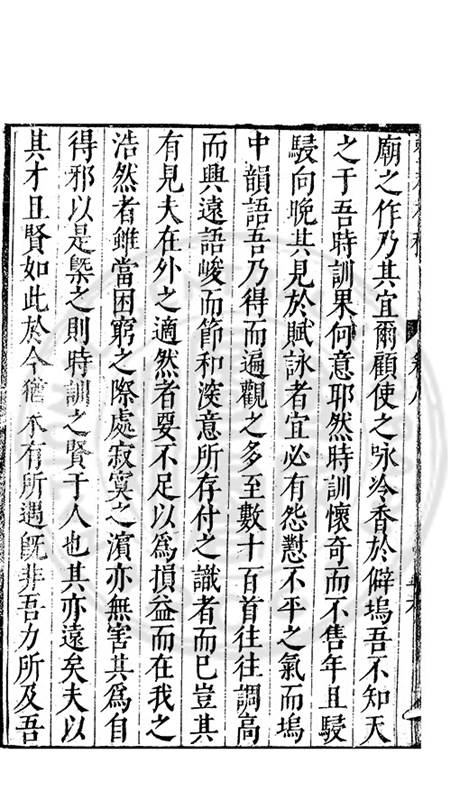 廟之作乃其宜爾顧使之咏冷香於僻塢吾不知天
之于吾時訓果何意耶然時訓懷奇而不售年且駸
駸向晩其見於賦詠者宜必有怨懟不平之氣而塢
中韻語吾乃得而遍觀之多至數十百首往往調高
而興遠語峻而節和深意所存付之識者而已豈其
有見夫在外之適然者要不足以爲損益而在我之
浩然者雖當困窮之際處寂寞之濵亦無害其爲自
得邪以是槩之則時訓之賢于人也其亦遠矣夫以
其才且賢如此於今猶不有所遇旣非吾力所及吾